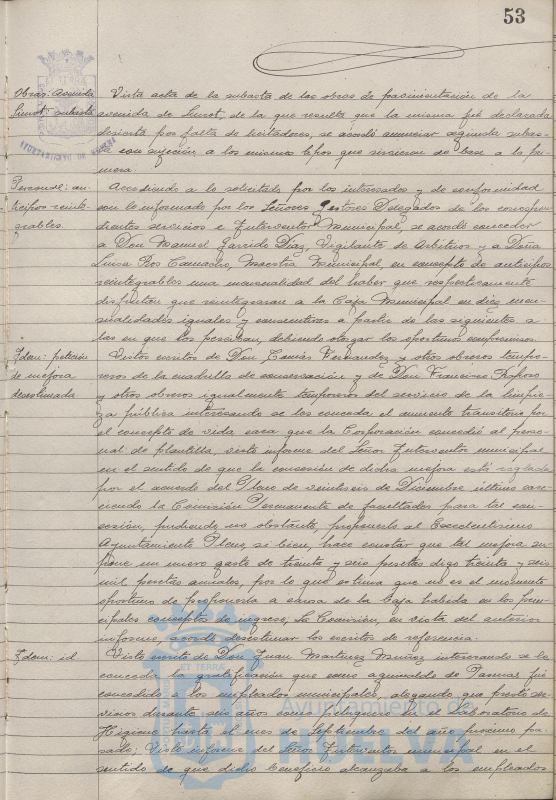 53
Obras: Avenida
Sunot subasta
AYUNTAMIENTO DE HUELVA
Vista acta de la subasta de las obras de pavimentación de la
avenida de Sunot, de la que resulta que la misma fué declarada
desierta por falta de licitadores, se acordó anunciar segunda subas-
ta con sujeción a los mismos tipos que sirvieron de base a la pri
mera.
Personal: an-
ticipos reinte-
grables.
Accediendo a lo solicitado por los interesados y de conformidad
con lo informado por los Señores Gestores Delegados de los correspon
dientes servicios e Interventor Municipal, se acordó conceder
a Don Manuel Garrido Díaz, Vigilante de Arbitrios y a Doña
Luisa Ros Camacho, Maestra Municipal, en concepto de anticipos
reintegrables una mensualidad del haber que respectivamente
disfrutan que reintegrarán a la Caja Municipal en diez men-
sualidades iguales y consecutivas a partir de las siguientes a
las en que los perciban, debiendo otorgar los oportunos compromisos.
Idem: petición
de mejora
desestimada
Vistos escritos de Don Tomás Fernandez y otros obreros tempo-
reros de la cuadrilla de conservación y de Don Francisco Raposo
y otros obreros igualmente temporeros del servicio de la limpie-
za pública interesando se les conceda el aumento transitorio por
el concepto de vida cara que la Corporación concedió al perso-
nal de plantilla, visto informe del Señor Interventor municipal
en el sentido de que la concesión de dicha mejora está reglada
por el acuerdo del Pleno de veintiseis de Diciembre último care-
ciendo la Comisión Permanente de facultades para tal con-
cesión, pudiendo, no obstante, proponerlo al Excelentísimo
Ayuntamiento Pleno, si bien, hace constar que tal mejora su-
pone un nuevo gasto de treinta y seis pesetas digo treinta y seis
mil pesetas anuales, por lo que estima que no es el momento
oportuno de proponerla a causa de la baja habida en los prin-
cipales conceptos de ingreso, La Comisión, en vista del anterior
informe, acordó desestimar los escritos de referencia.
Idem: id.
Visto escrito de Don Juan Martinez Muñoz interesando se le
conceda la gratificación que como aguinaldo de Pascuas fué
concedida a los empleados municipales, alegando que prestó ser-
vicios durante seis años como peluquero del Laboratorio de
Higiene hasta el mes de Septiembre del año próximo pa-
sado; Visto informe del Señor Interventor municipal en el
sentido de que dicho beneficio alcanzaba a los empleados
ET TERRA
Ayuntamiento de
HUELVA